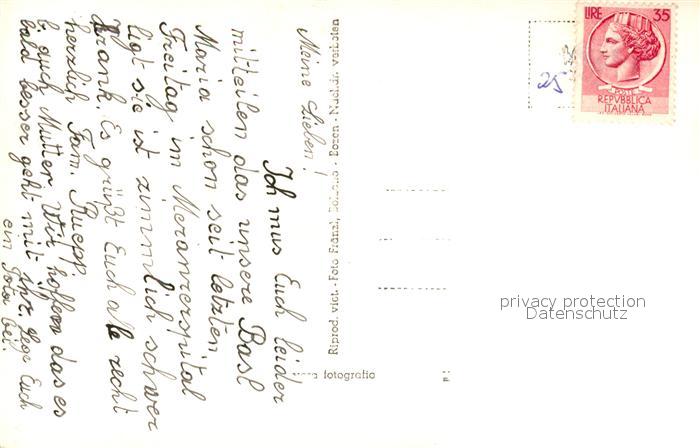 Meine Lieben!
Ich mus Euch leider
mitteilen das unsere Basl
Maria schon seit letzten
Freitag im Meranerspital
ligt sie ist zimmlich schwer
krank. Es grüßt Euch alle recht
herzlich Fam. Ruepp.
b. auch Mutter Wir hoffen das es
bald besser geht mit ihr. Lege Euch
ein Foto bei.
Riprod. viet. - Foto Fränzl, Bolzano - Bozen - Nachdr. verboten
vera fotografia
25
LIRE 35
POSTE
REPVBBLICA
ITALIANA
privacy protection
Datenschutz